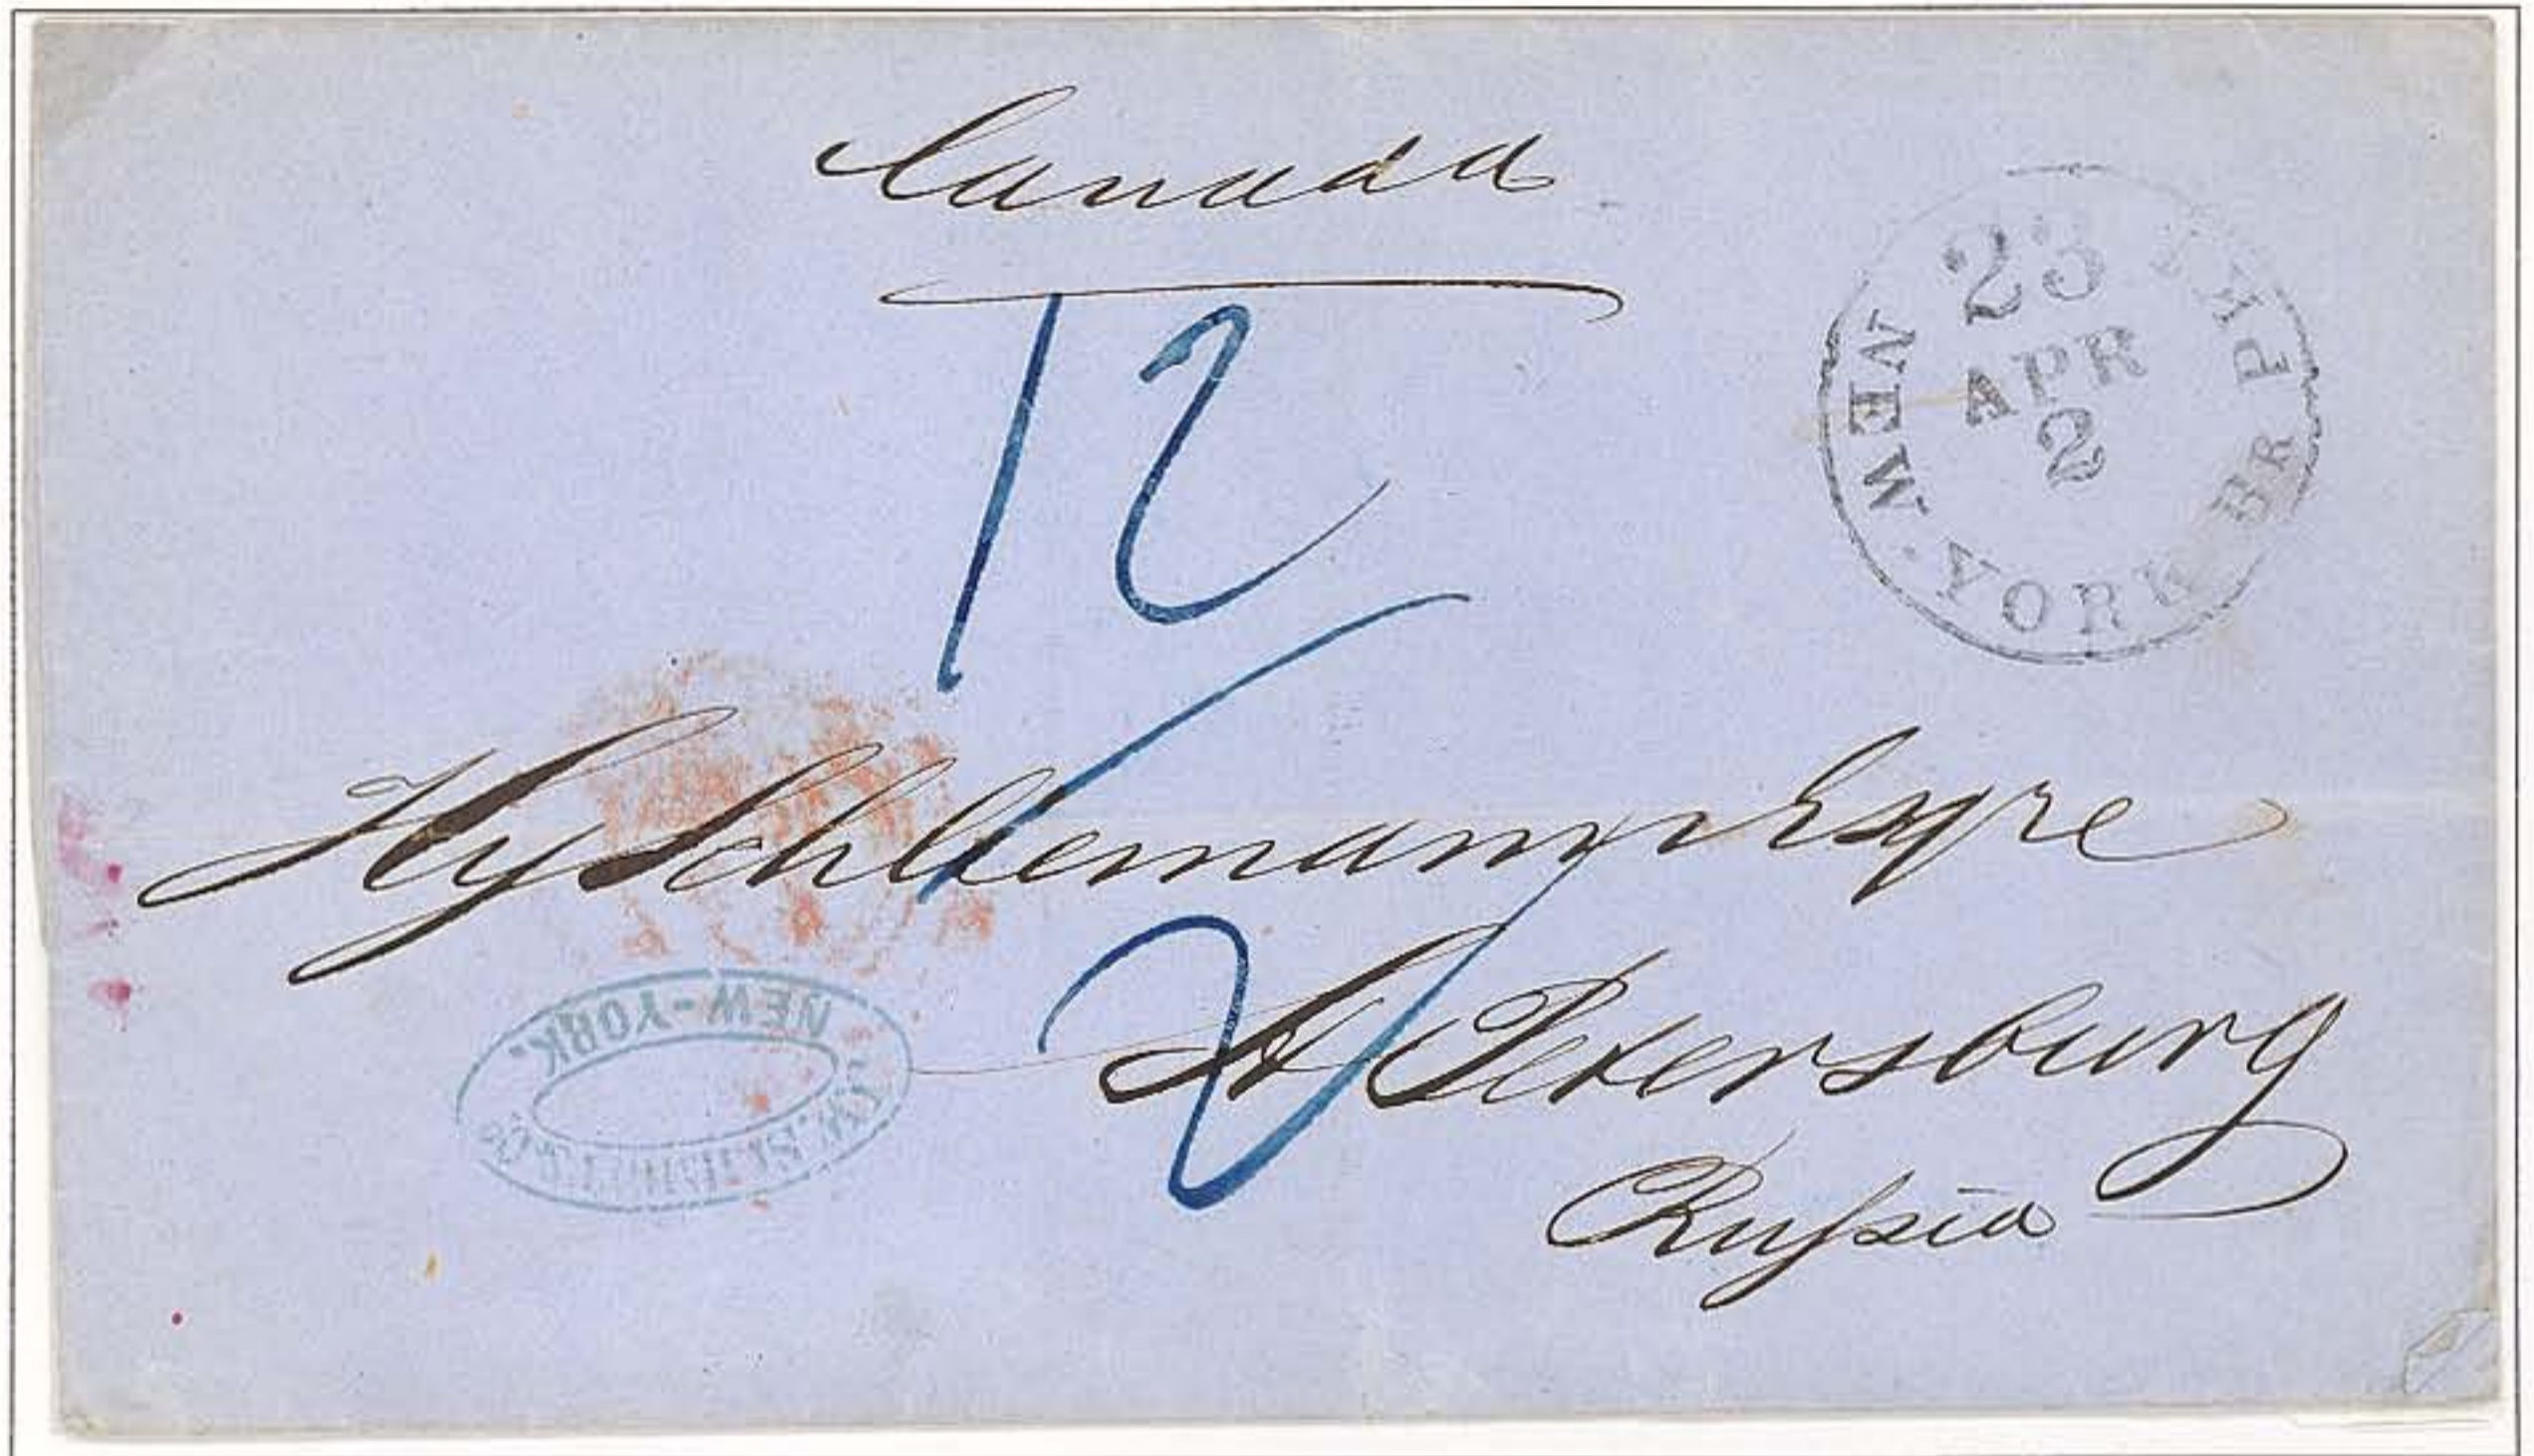 Canada
23
APR
2
NEW-YORK BR PKT
12
Hy Schliemann Esqre
2
St Petersburg
Russia
NEW-YORK.
& Co